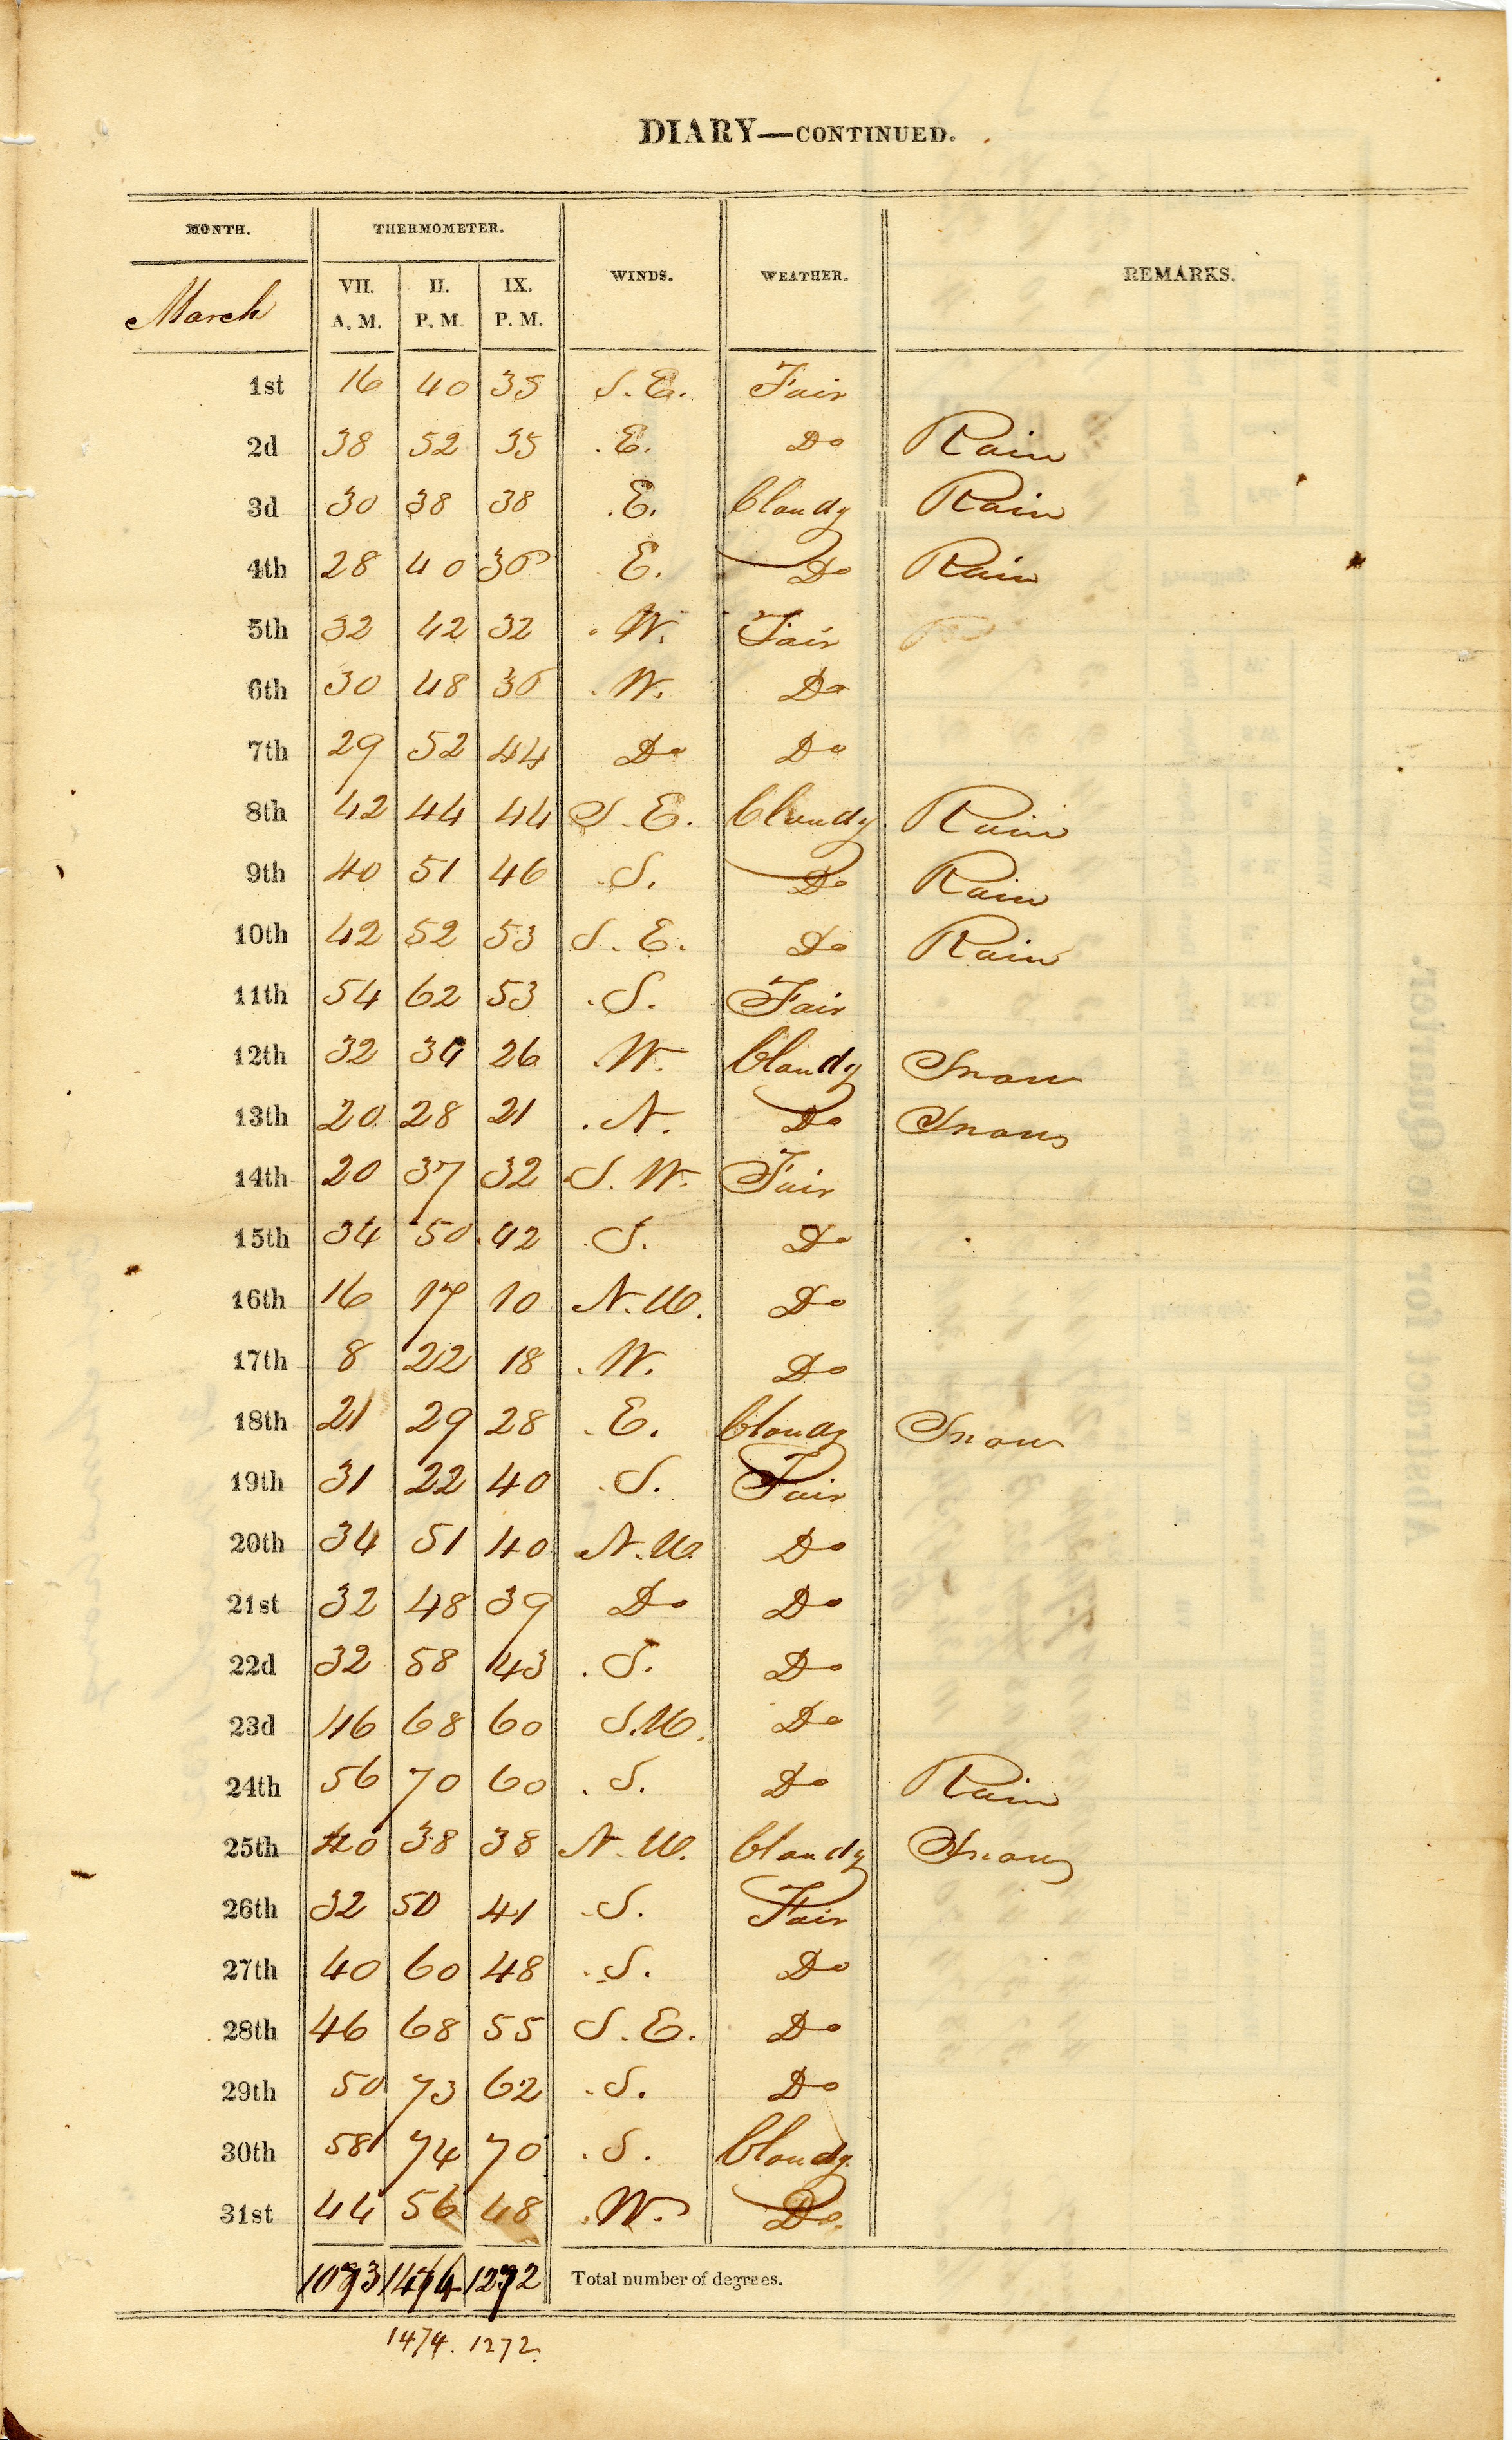 DIARY—CONTINUED.
MONTH. THERMOMETER. WINDS. WEATHER. REMARKS.
March VII. A. M. II. P. M. IX. P. M.
1st 16 40 35 S. E. Fair
2d 38 52 35 E. Do Rain
3d 30 38 38 E. Cloudy Rain
4th 28 40 36 E. Do Rain
5th 32 42 32 W. Fair
6th 30 48 36 W. Do
7th 29 52 44 Do Do
8th 42 44 44 S. E. Cloudy Rain
9th 40 51 46 S. Do Rain
10th 42 52 53 S. E. Do Rain
11th 54 62 53 S. Fair
12th 32 34 26 W. Cloudy Snow
13th 20 28 21 N. Do Snow
14th 20 37 32 S. W. Fair
15th 34 50 42 S. Do
16th 16 17 10 N. W. Do
17th 8 22 18 W. Do
18th 21 29 28 E. Cloudy Snow
19th 31 22 40 S. Fair
20th 34 51 40 N. W. Do
21st 32 48 39 Do Do
22d 32 58 43 S. Do
23d 46 68 60 S.W. Do
24th 56 70 60 S. Do Rain
25th 40 38 38 N. W. Cloudy Snow
26th 32 50 41 S. Fair
27th 40 60 48 S. Do
28th 46 68 55 S. E. Do
29th 50 73 62 S. Do
30th 58 74 70 S. Cloudy
31st 44 56 48 W. Do.
1073 1474 1272 Total number of degrees.
1474. 1272.